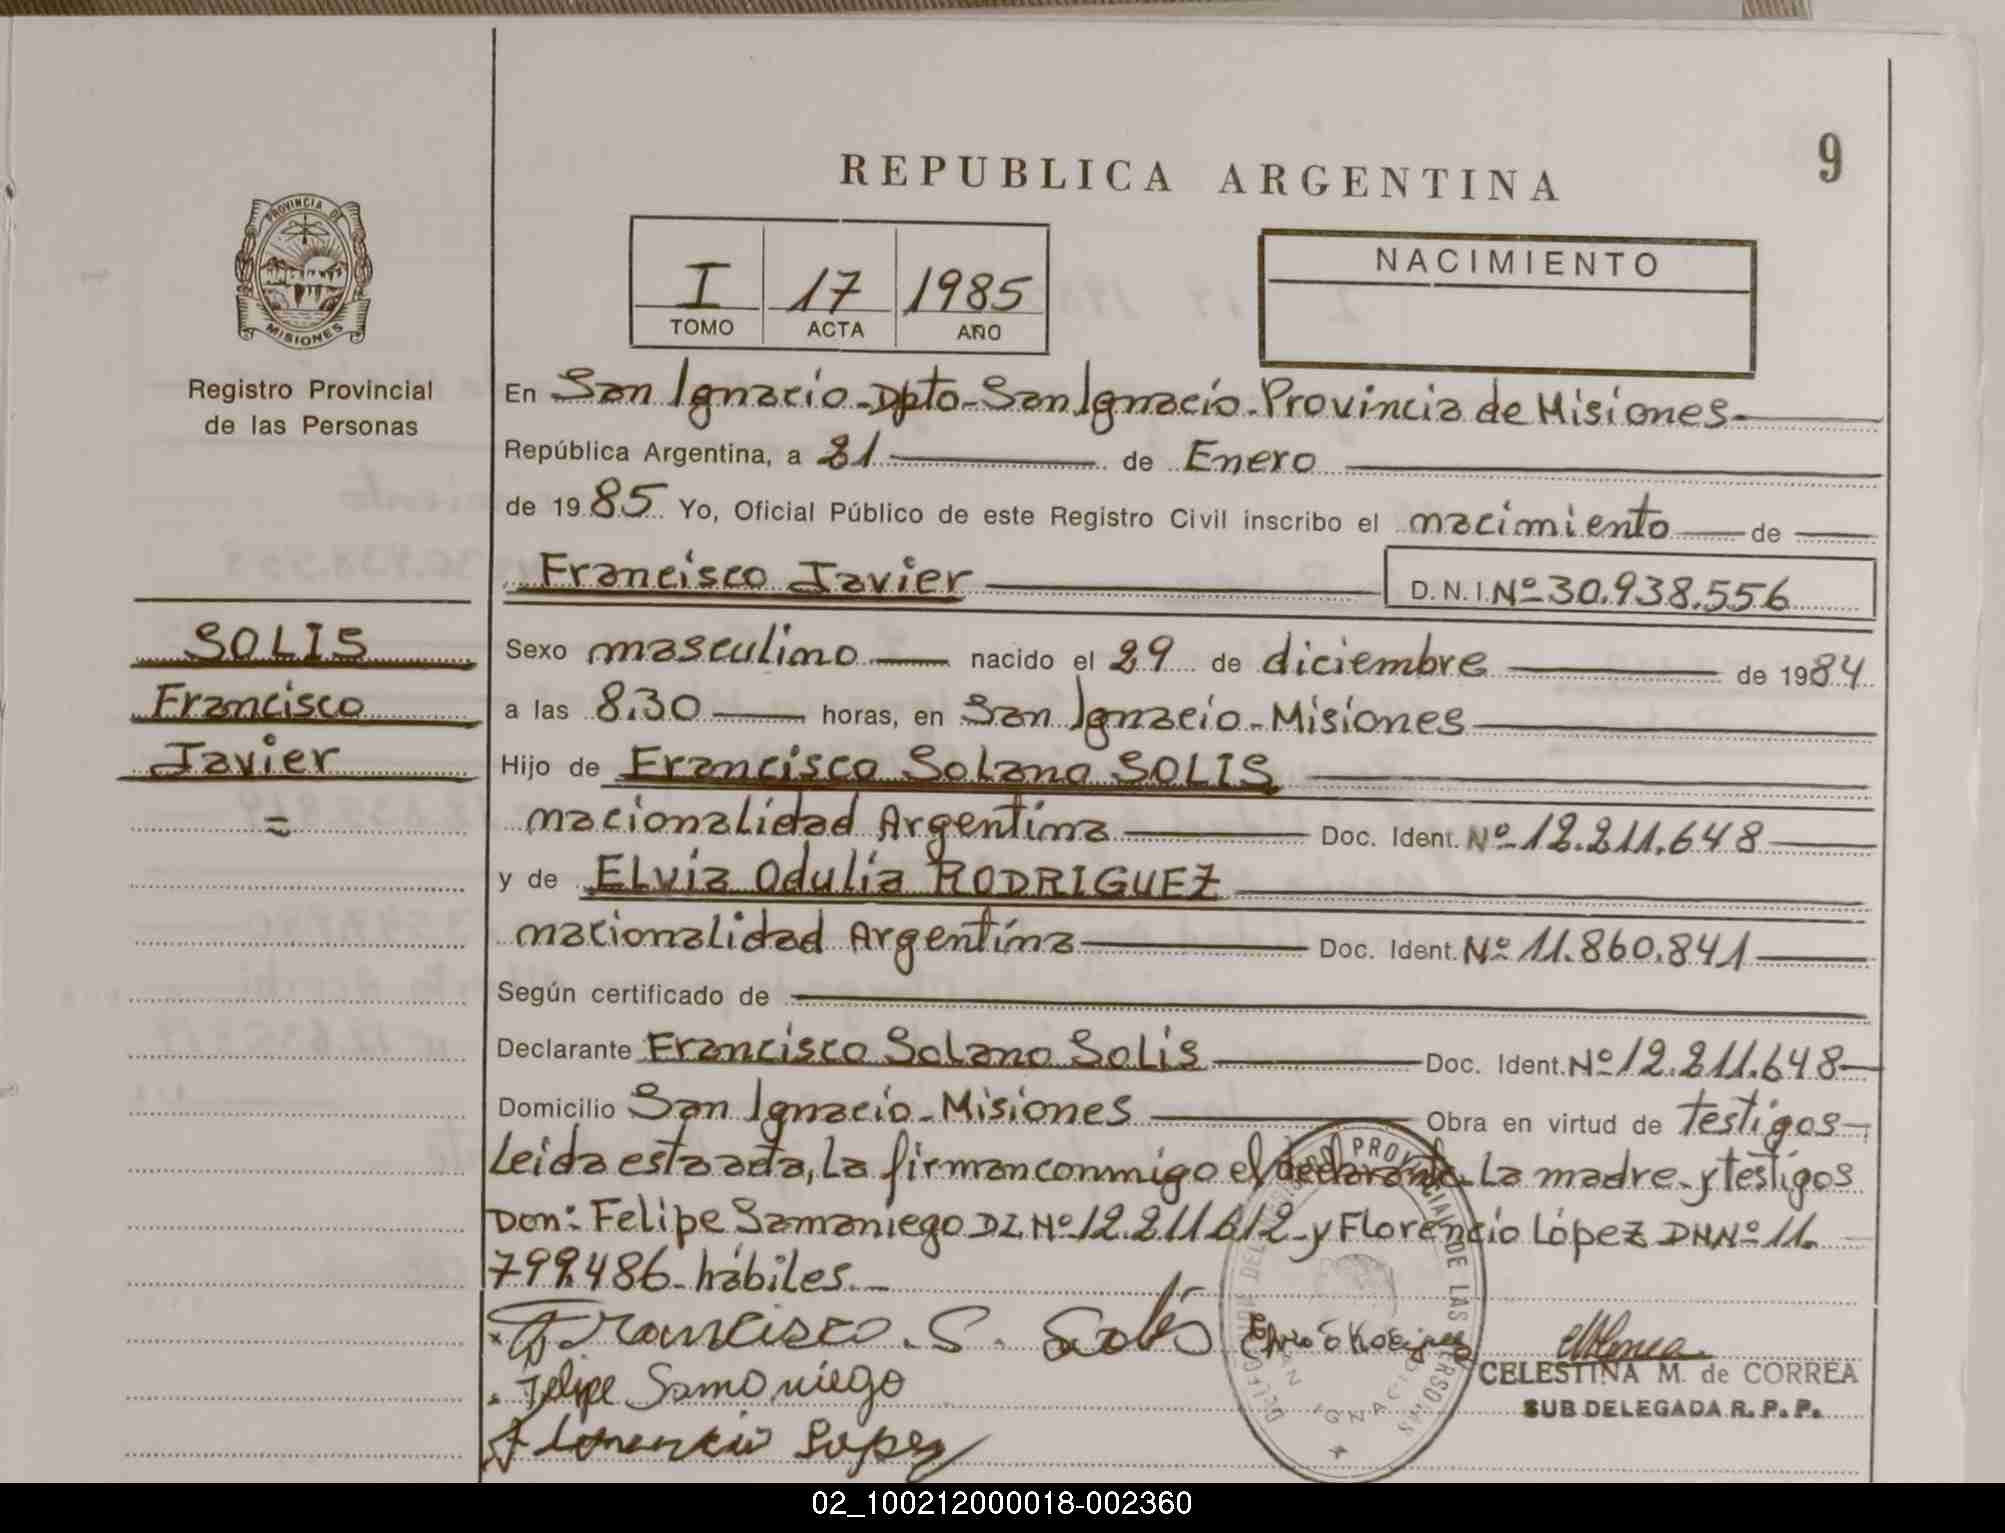 9
REPUBLICA ARGENTINA
PROVINCIA DE
MISIONES
Registro Provincial
de las Personas
I 17 1985
TOMO ACTA AÑO
NACIMIENTO
En San Ignacio - Dpto - San Ignacio - Provincia de Misiones
República Argentina, a 21 de Enero
de 1985 Yo, Oficial Público de este Registro Civil inscribo el nacimiento de
Francisco Javier D.N.I. Nº 30.938.556
SOLIS
Francisco
Javier
=
Sexo masculino nacido el 29 de diciembre de 1984
a las 8.30 horas, en San Ignacio - Misiones
Hijo de Francisco Solano SOLIS
nacionalidad Argentina Doc. Ident. Nº 12.211.648
y de ELvia Odulia RODRIGUEZ
nacionalidad Argentina Doc. Ident. Nº 11.860.841
Según certificado de
Declarante Francisco Solano Solis Doc. Ident. Nº 12.211.648
Domicilio San Ignacio - Misiones Obra en virtud de testigos
Leida esta acta, La firman conmigo el declarante La madre y testigos
Don: Felipe Samaniego DI. Nº 12.211.612 y Florencio López DNI Nº 11.
799.486 hábiles.
Francisco. S. Solis
Felipe Samaniego
Florencio Lopez
CELESTINA M. de CORREA
SUB DELEGADA R. P. P.
02_100212000018-002360